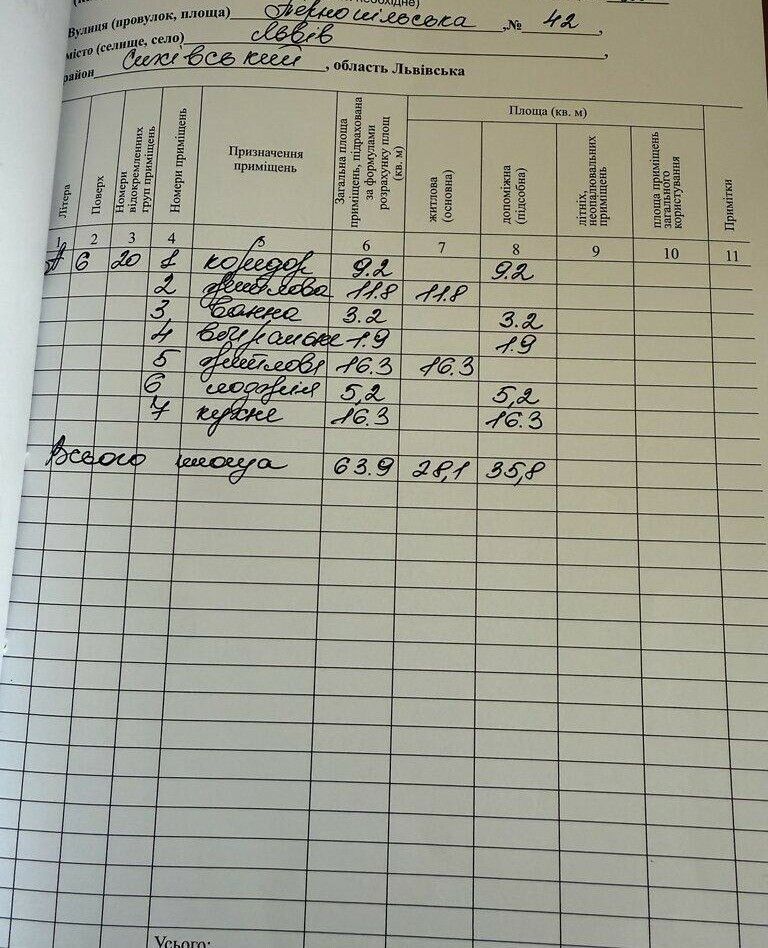 необхідне)
Вулиця (провулок, площа) Тернопільська ,№ 42 ,
місто (селище, село) Львів ,
район Сихівський , область Львівська
Літера
Поверх
Номери відокремленних груп приміщень
Номери приміщень
Призначення приміщень
Загальна площа приміщень, підрахована за формулами розрахунку площ (кв. м)
Площа (кв. м)
житлова (основна)
допоміжна (підсобна)
літніх, неопалювальних приміщень
площа приміщень загального користування
Примітки
1 2 3 4 5 6 7 8 9 10 11
А 6 20 1 коридор 9.2 9.2
2 житлова 11.8 11.8
3 ванна 3.2 3.2
4 вбиральне 1.9 1.9
5 житлова 16.3 16.3
6 лоджія 5,2 5,2
7 кухне 16.3 16.3
Всього площа 63.9 28,1 35,8
Усього: